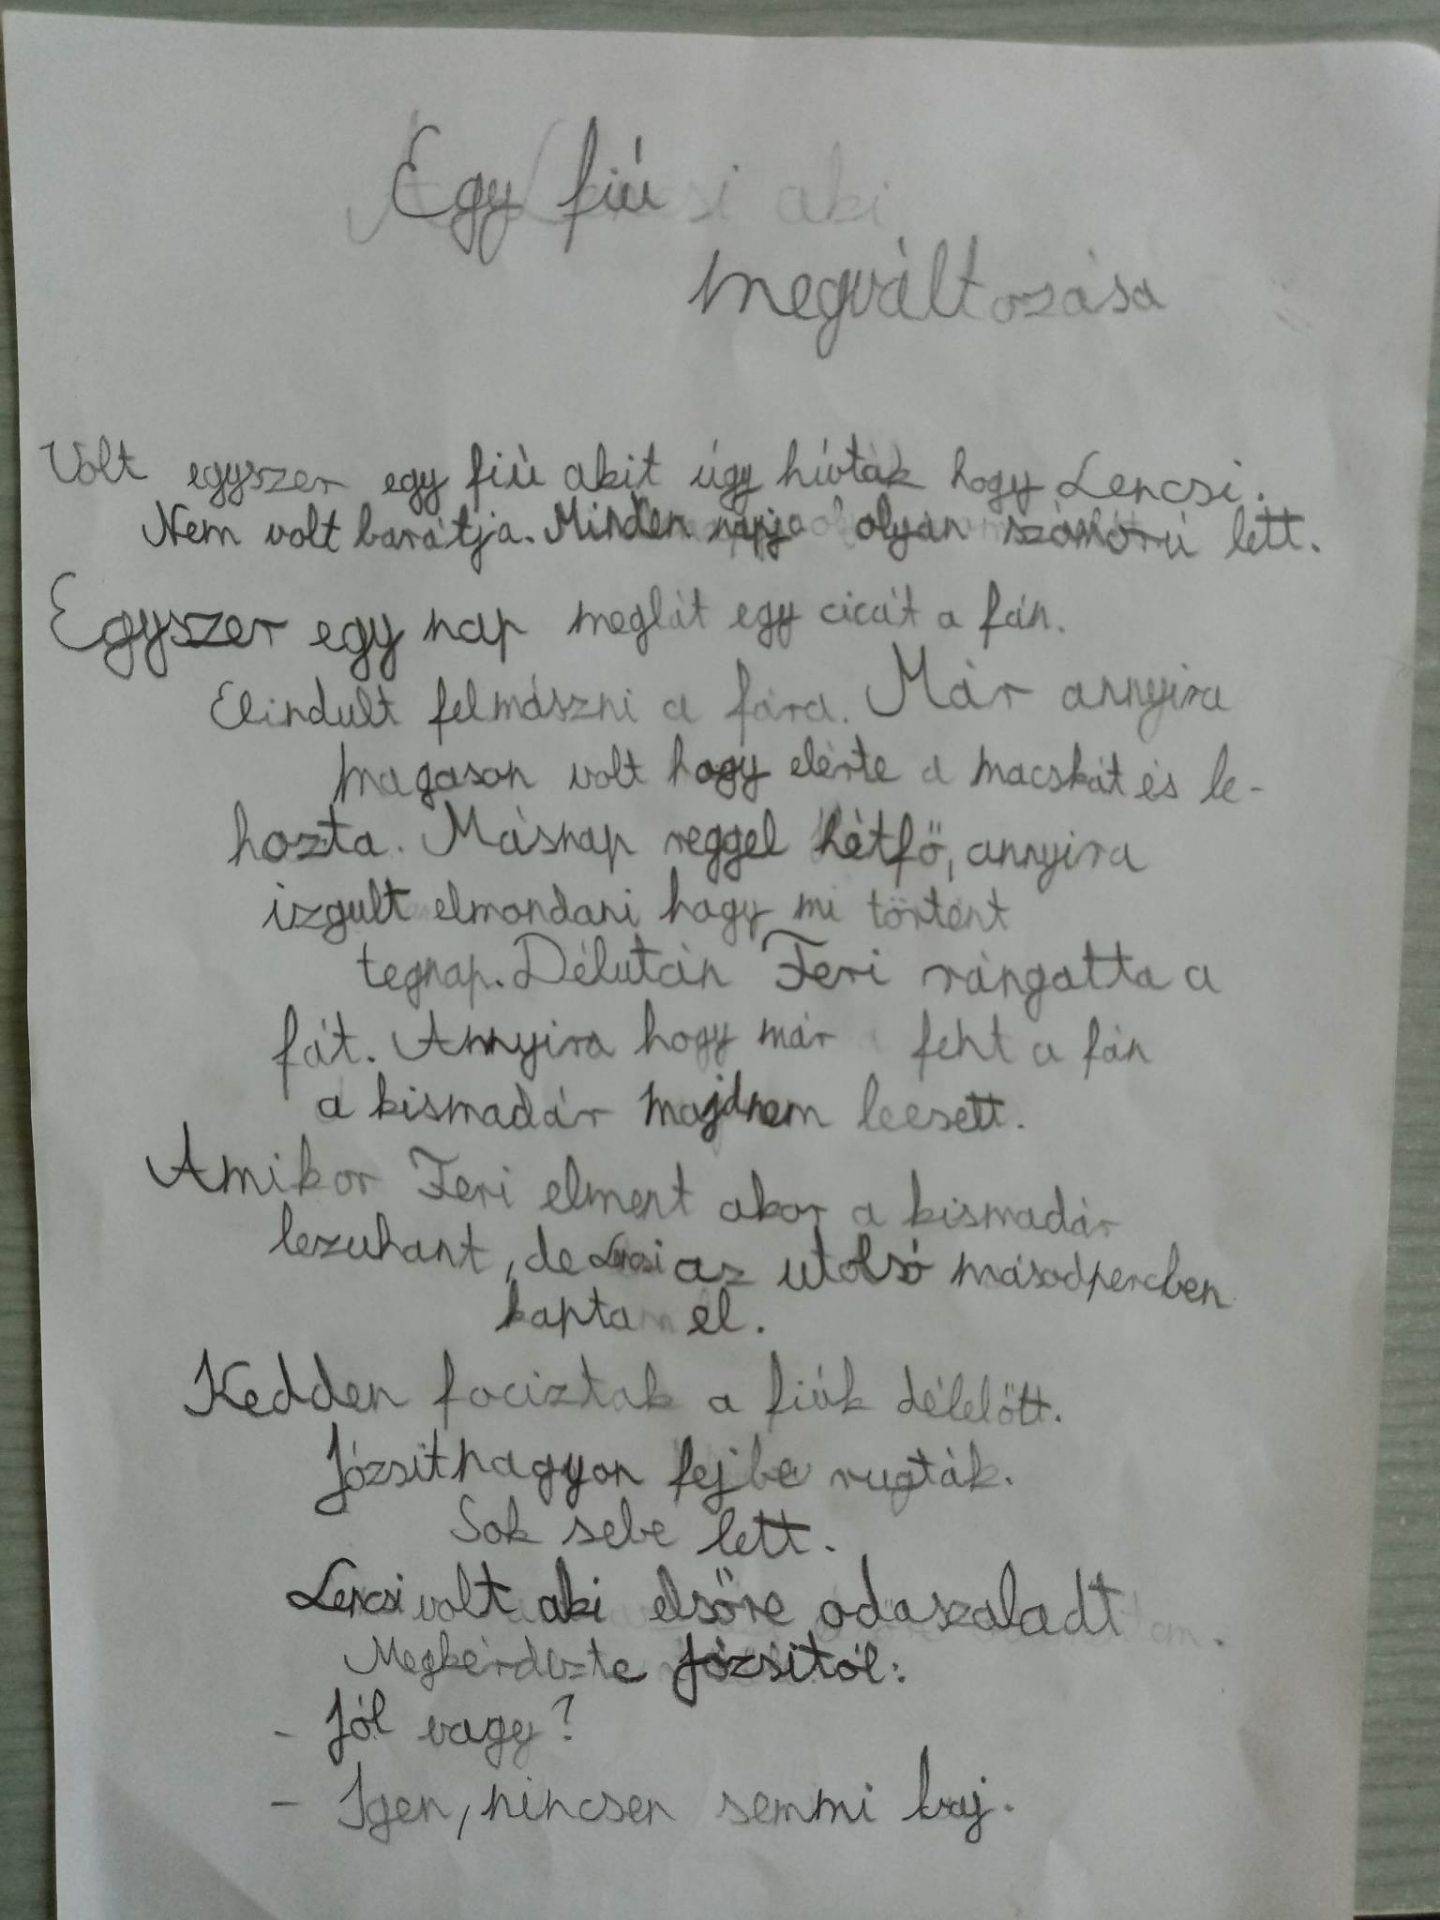 Egy fiú
megváltozása
Volt egyszer egy fiú akit úgy hívták hogy Lencsi.
Nem volt barátja. Minden napja olyan szomorú lett.
Egyszer egy nap meglát egy cicát a fán.
Elindult felmászni a fára. Már annyira
magason volt hogy elérte a macskát és le-
hozta. Másnap reggel hétfő, annyira
izgult elmondani hogy mi történt
tegnap. Délután Feri rángatta a
fát. Annyira hogy már fent a fán
a kismadár majdnem leesett.
Amikor Feri elment akor a kismadár
lezuhant, de Lencsi az utolsó másodpercben
kapta el.
Kedden fociztak a fiúk délelőtt.
Józsit nagyon fejbe rugták.
Sok sebe lett.
Lencsi volt aki elsőre odaszaladt.
Megkérdezte Józsitól:
- Jól vagy?
- Igen, nincsen semmi baj.